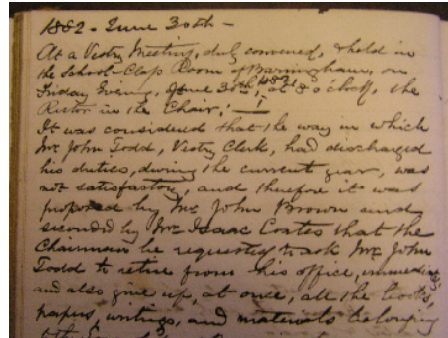 1882 - June 30th -
At a Vestry Meeting, duly convened, & held in
the School-Class Room of Barningham, on
Friday Evening, June 30th, 1882 at 8 o'clock, the
Rector in the Chair; -
It was considered that the way in which
Mr John Todd, Vestry Clerk, had discharged
his duties, during the current year, was
not satisfactory, and therefore it was
proposed by Mr John Brown and
seconded by Mr Isaac Coates that the
Chairman be requested to ask Mr John
Todd to retire from his office,
and also give up, at once, all the books,
papers, writings, and materials belonging